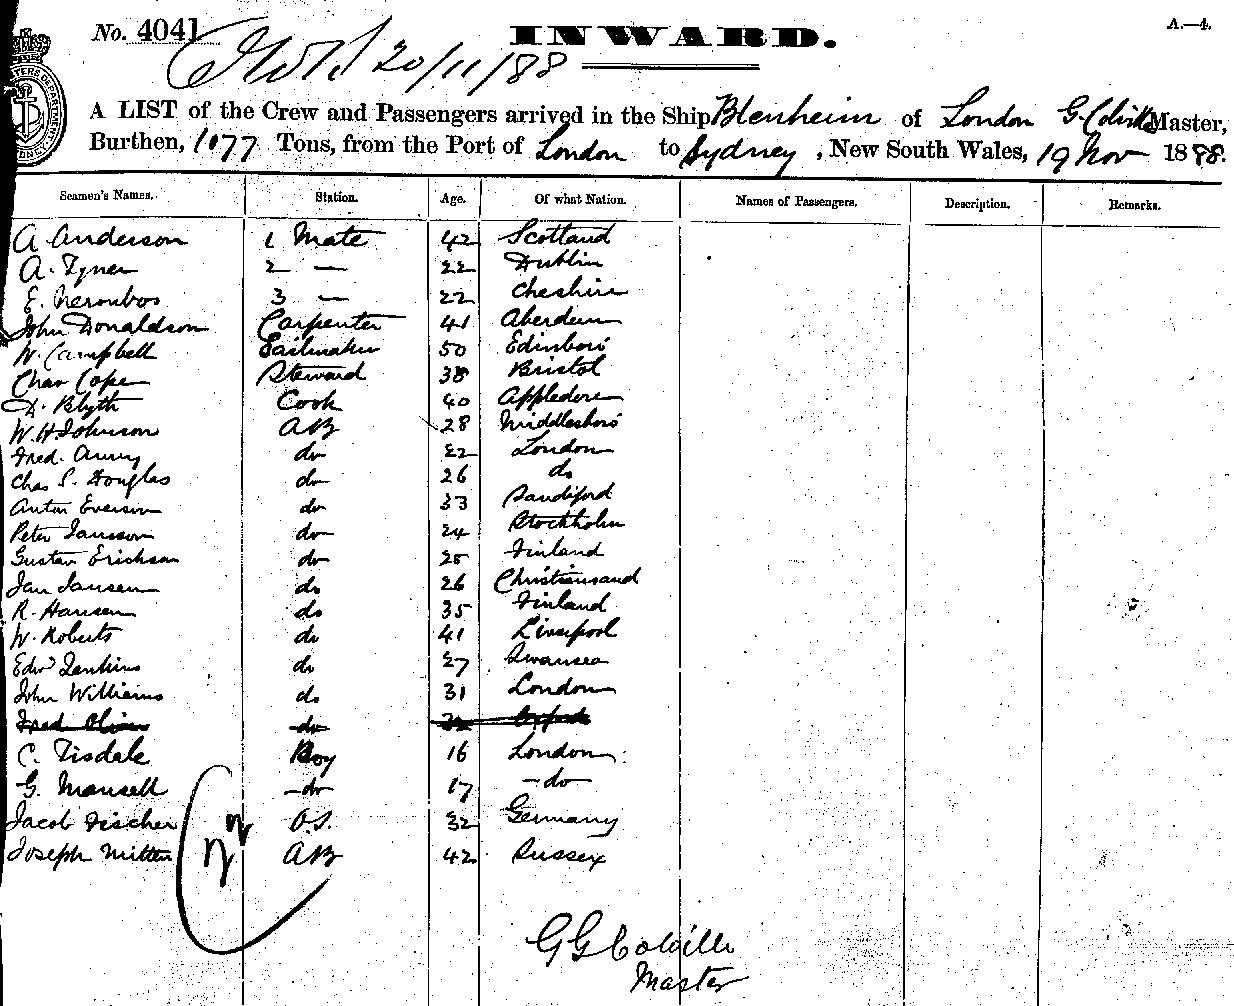 No. 4041
INWARD.
A.—4.
20/11/88
A LIST of the Crew and Passengers arrived in the Ship Blenheim of London G. Colville Master,
Burthen, 1077 Tons, from the Port of London to Sydney, New South Wales, 19 Nov 1888.
Seamen's Names. Station. Age. Of what Nation. Names of Passengers. Description. Remarks.
A. Anderson 1 Mate 42 Scotland
A. Tyner 2 — 22 Dublin
E. 3 — 22 Cheshire
John Donaldson Carpenter 41 Aberdeen
W. Campbell Sailmaker 50 Edinboro'
Chas Cope Steward 38 Bristol
D. Blyth Cook 40 Appledore
W. H. Johnson AB 28 Middlesboro'
Fred. do 22 London
Chas S. Douglas do 26 do
Anton Everson do 33 Sandiford
Peter Jansson do 24 Stockholm
Gustav Erickson do 25 Finland
Jan Jansen do 26 Christiansand
R. Hansen do 35 Finland
W. Roberts do 41 Liverpool
Edw Jenkins do 27 Swansea
John Williams do 31 London
Fred do
C. Tisdale Boy 16 London
G. Mansell -do 17 -do-
Jacob Fischer O.S. 32 Germany
Joseph Mitten AB 42 Sussex
G G Colville
Master